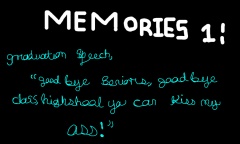 MEMORIES 1!
graduation speech,
"good bye Seniors, good bye
class highshool ya can kiss my
ASS!"